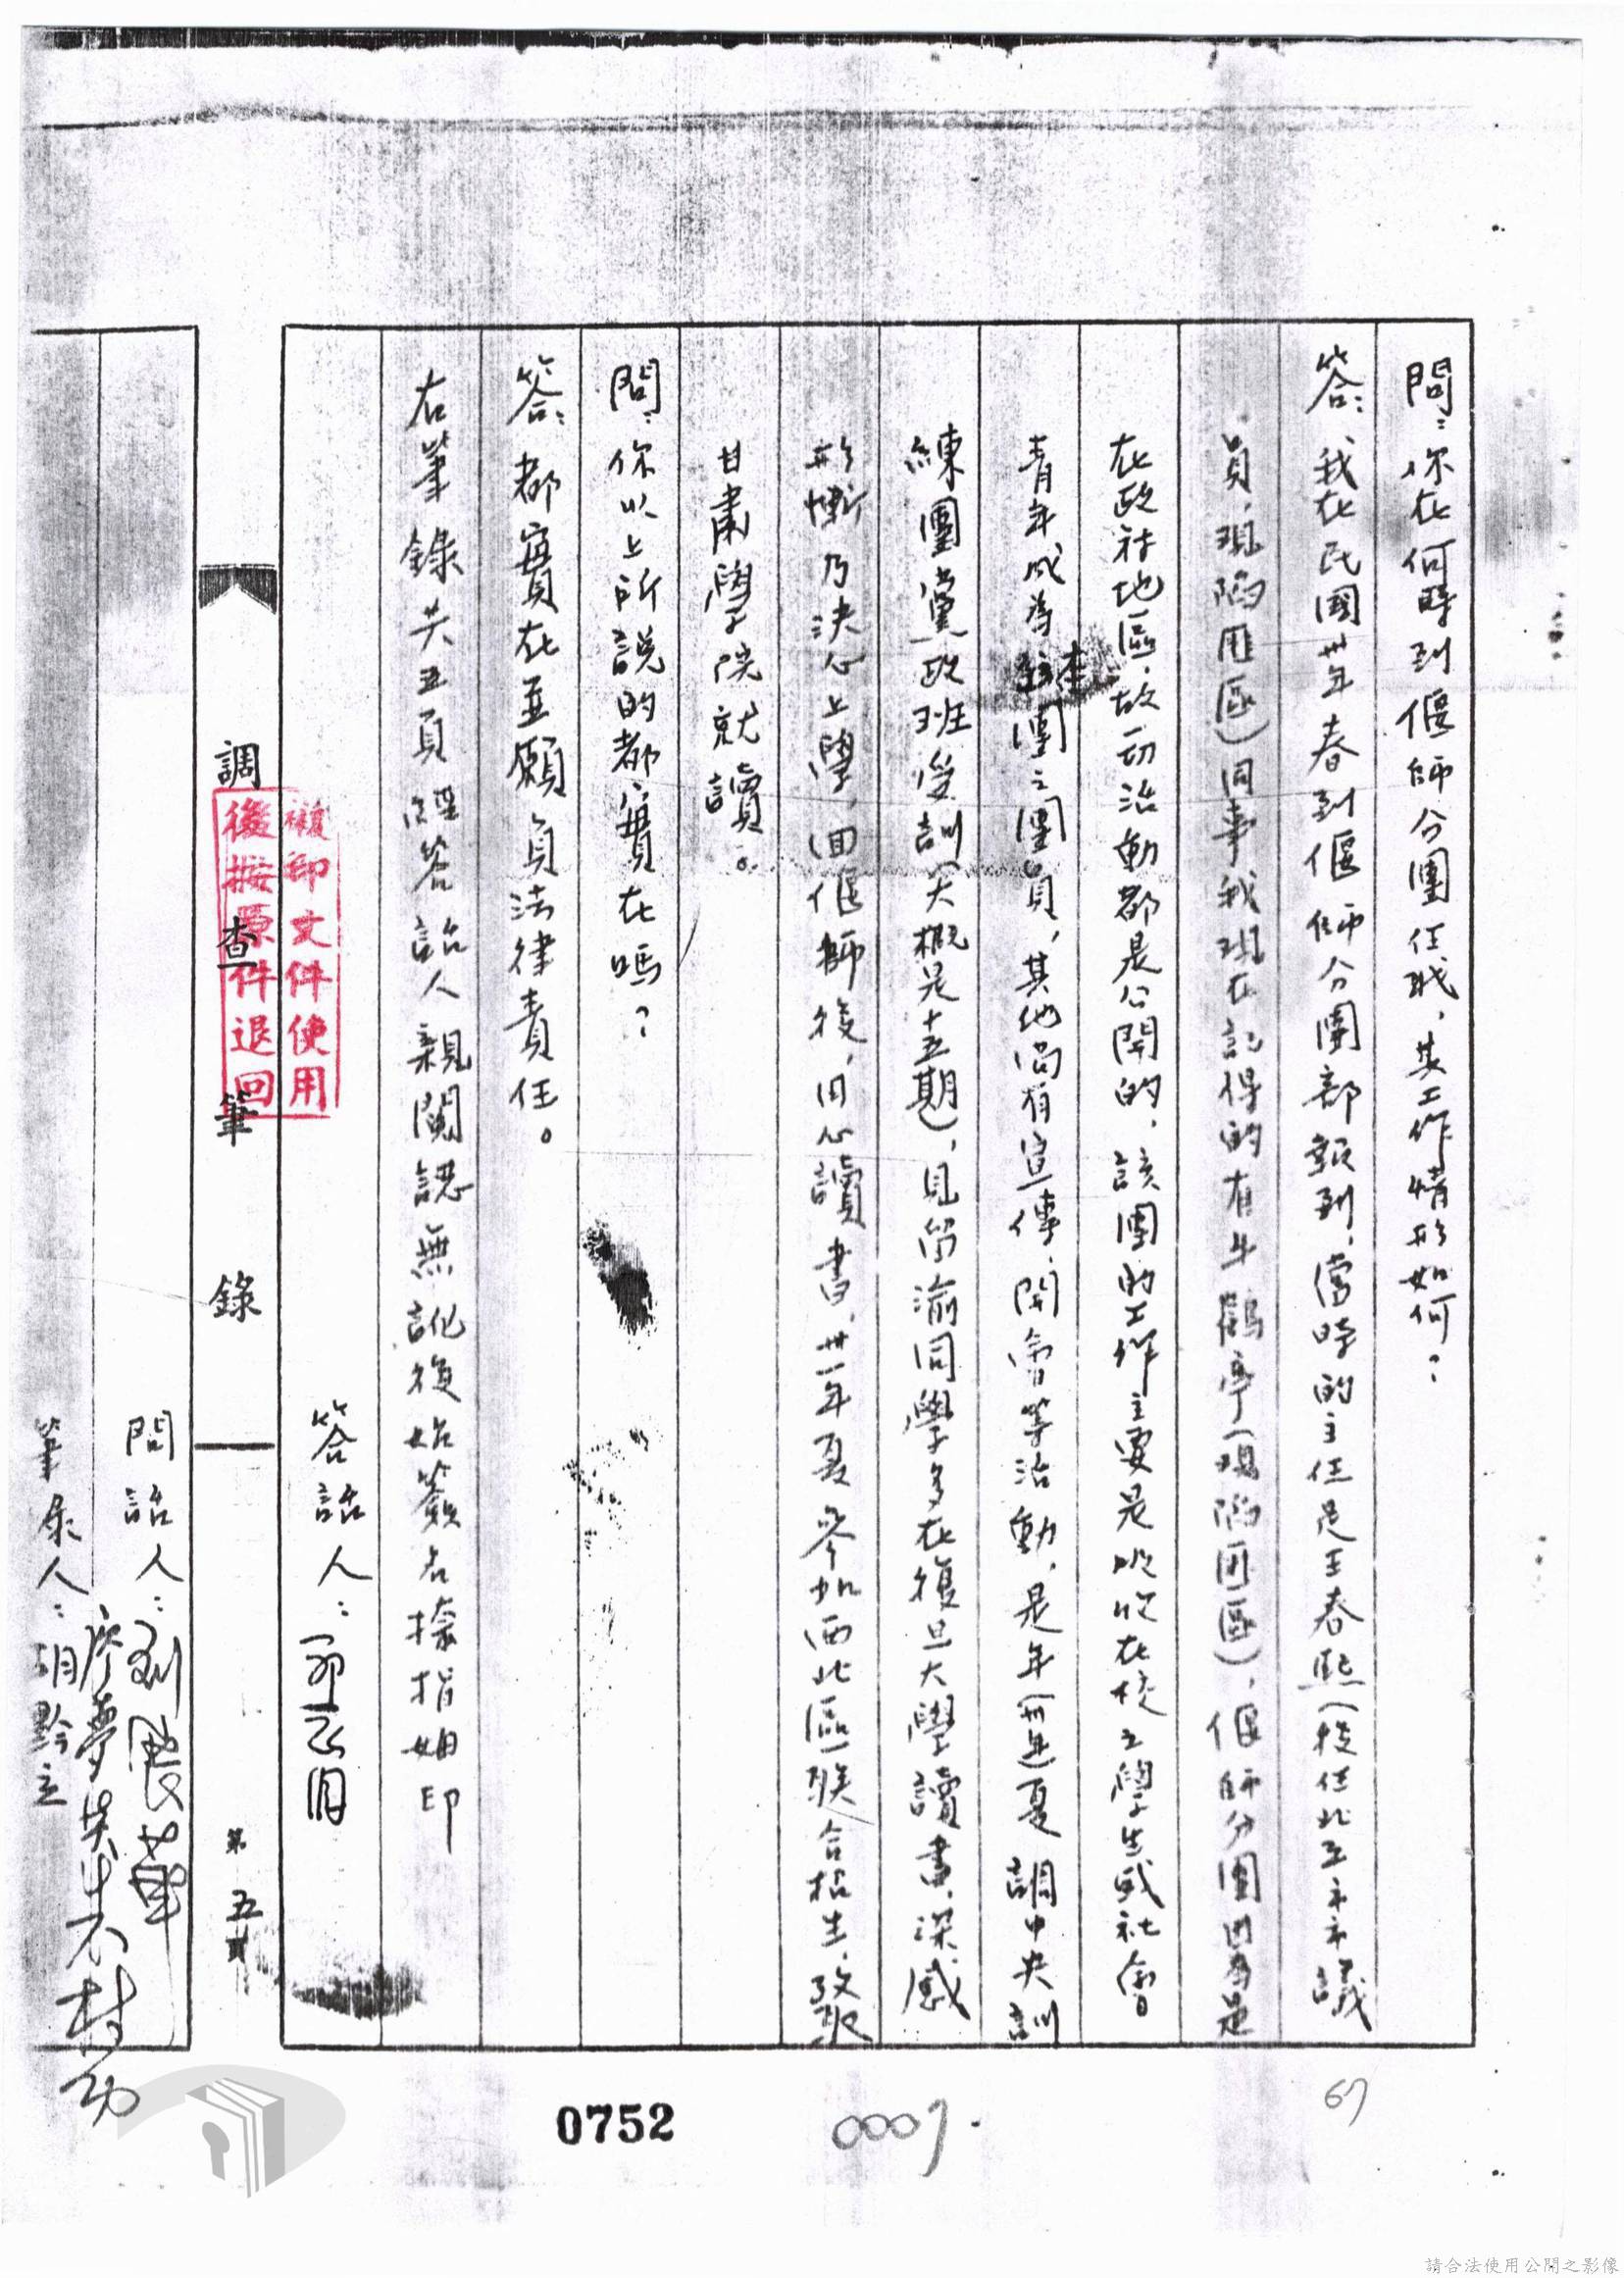 問：你在何時到偃師分團任職，其工作情形如何？
答：我在民國卅年春到偃師分團部報到，當時的主任是王春熙（後任北平市市議
員，現陷匪區）同事我現在記得的有牛鶴亭（現陷匪區），偃師分團因為是
在政府地區，故一切活動都是公開的，該團的工作主要是吸收在校之學生或社會
青年成為本團之團員，其他尚有宣傳、開會等活動，是年（卅年）夏調中央訓
練團黨政班受訓（大概是十五期），見留渝同學多在復旦大學讀書，深感
形慚乃決心上學，回偃師後，用心讀書，卅一年夏參加西北區聯合招生，考取
甘肅學院就讀。
問：你以上所說的都實在嗎？
答：都實在並願負法律責任。
右筆錄共五頁經答話人親閱認無訛後始簽名捺指姆印
答話人：
調查筆錄
第五頁
複印文件使用
後按原件退回
問話人：劉展華
廖夢英 朱不
筆錄人：胡黔立
0752
0007.
67
請合法使用公開之影像